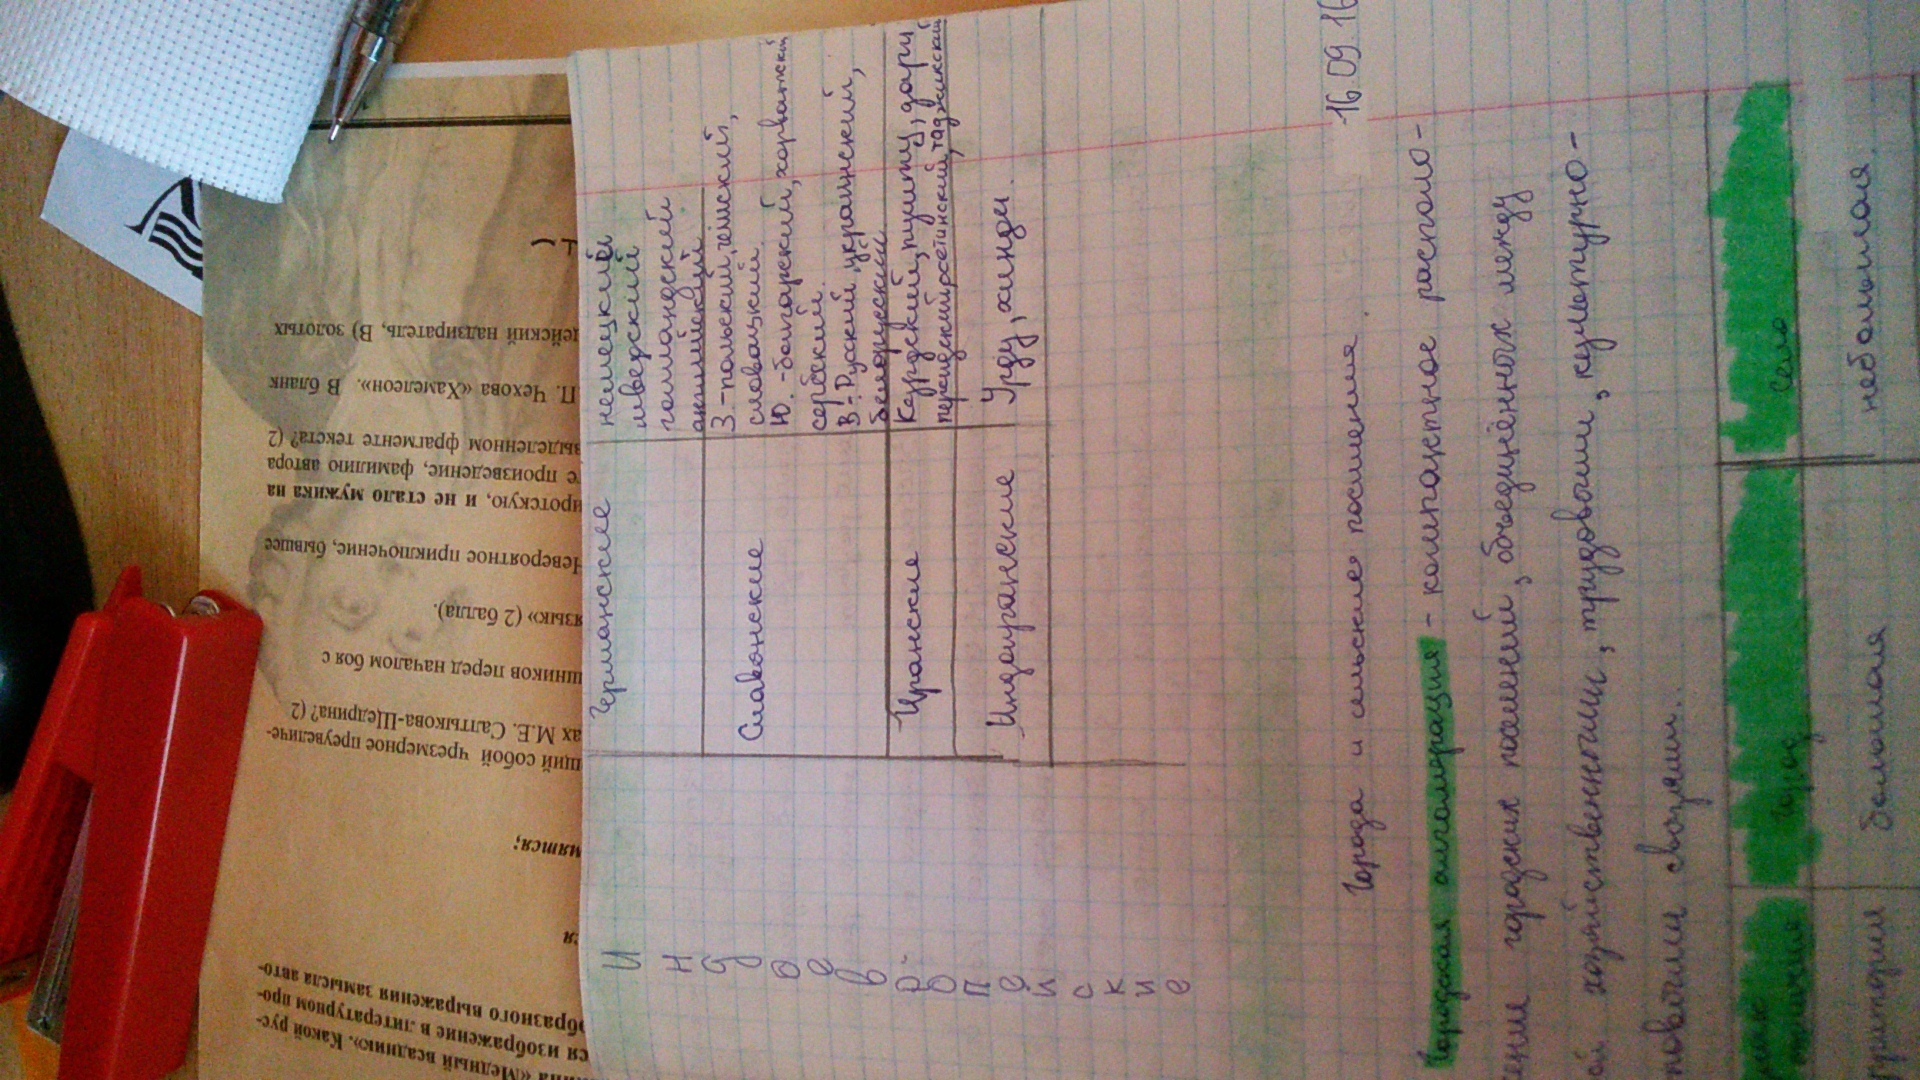 Индоевропейские
Германские
немецкий
шведский
голландский
английский
Славянские
З.-польский, чешский,
словацкий.
Ю.-болгарский, хорватский
сербский.
В.-Русский, украинский,
белорусский.
Иранские
Курдский, пушту, дари,
персидский, осетинский, таджикский
Индоиранские
Урду, хинди.
16.09.16
Города и сельские поселения
Городская агломерация - компактное располо-
жение городских поселений, объединённых между
собой хозяйственными, трудовыми, культурно-
бытовыми связями.
отличия
город
село
территория
большая
небольшая.
дейский надзиратель, В) золотых
П. Чехова «Хамелеон». В бланк
выделенном фрагменте текста? (2
е произведение, фамилию автора
иротскую, и не стало мужика на
Невероятное приключение, бывшее
язык» (2 балла).
шников перед началом боя с
ах М.Е. Салтыкова-Щедрина? (2
щий собой чрезмерное преувеличе-
мятся;
ся
образного выражения замысла авто-
ся изображение в литературном про-
ина «Медный всадник». Какой рус-